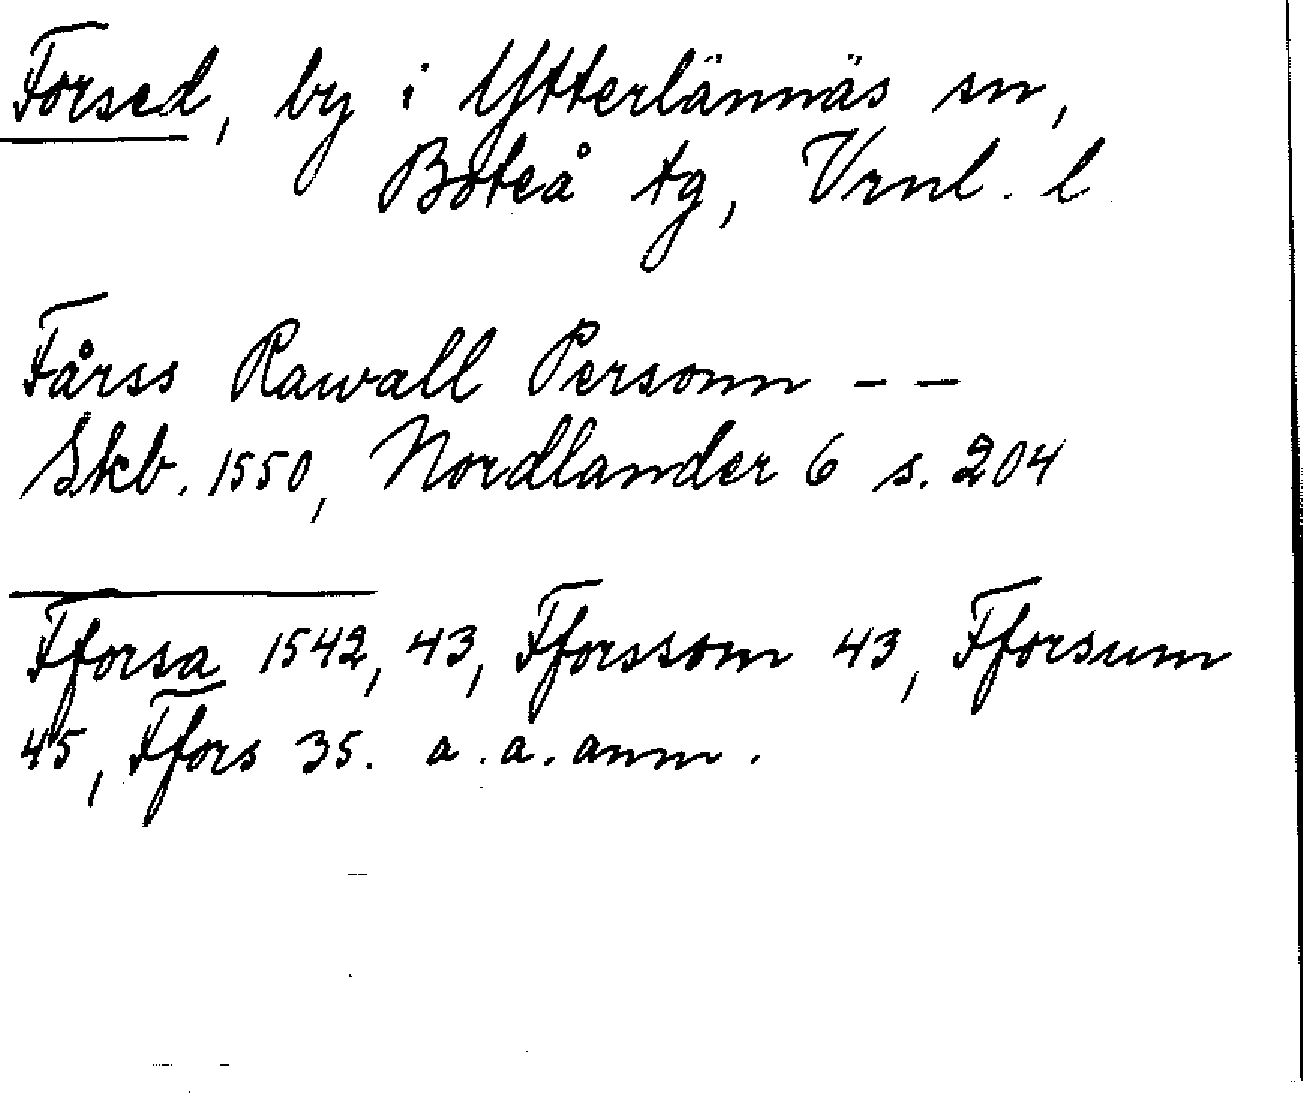 Forsed, by i Ytterlännäs sn,
Boteå tg, Vrnl. l
Fårss Rawall Personn - -
Skb. 1550, Nordlander 6 s. 204
Fforsa 1542, 43, Fforssom 43, Fforsum
45, Ffors 35. a.a. anm.